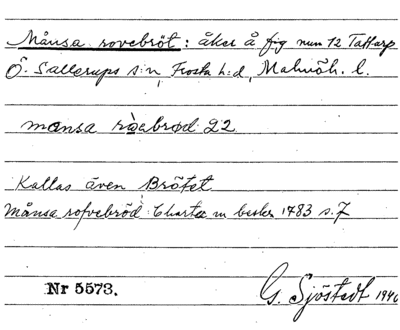 Månsa rovebröt: åker å fig num 12 Tattarp
Ö. Sallerups s:n, Frosta h:d, Malmöh. l.
mɑnsa ràabrød 22
Kallas även Brötet
Månsa rofvebröd: Charta m beskr 1783 s. 7
Nr 5573.
G. Sjöstedt 1946